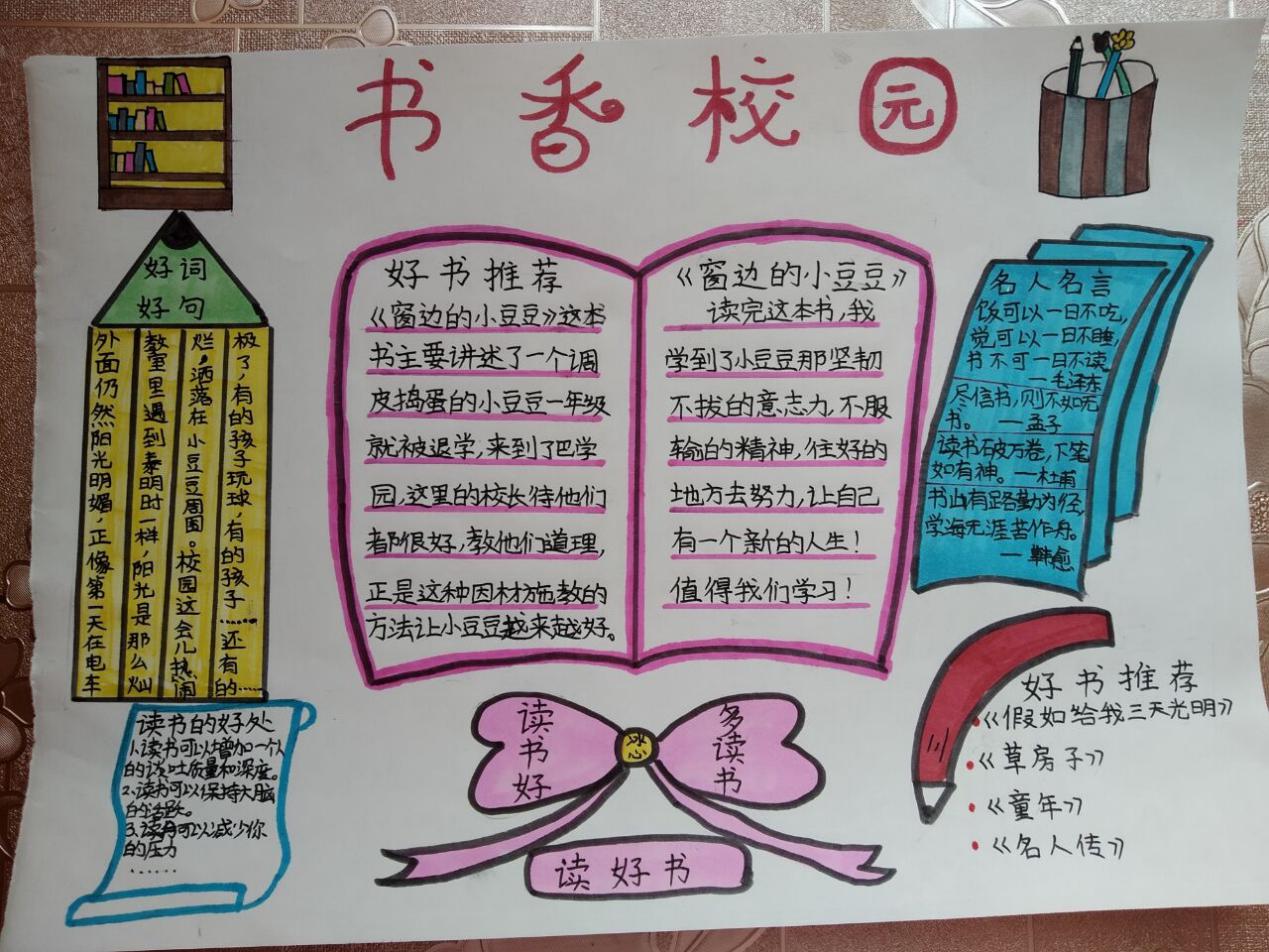 书香校园
好词
好句
外面仍然阳光明媚,正像第一天在电车
教室里遇到泰明时一样,阳光是那么灿
烂,洒落在小豆豆周围。校园这会儿热闹
极了,有的孩子玩球,有的孩子……还有的……
好书推荐
《窗边的小豆豆》这本
书主要讲述了一个调
皮捣蛋的小豆豆一年级
就被退学,来到了巴学
园,这里的校长待他们
都很好,教他们道理,
正是这种因材施教的
方法让小豆豆越来越好。
《窗边的小豆豆》
读完这本书,我
学到了小豆豆那坚韧
不拔的意志力,不服
输的精神,往好的
地方去努力,让自己
有一个新的人生!
值得我们学习!
名人名言
饭可以一日不吃,
觉可以一日不睡,
书不可一日不读
—毛泽东
尽信书,则不如无
书。 —孟子
读书破万卷,下笔
如有神。—杜甫
书山有路勤为径,
学海无涯苦作舟。
—韩愈
读书的好处
1.读书可以增加一个人
的谈吐质量和深度。
2.读书可以保持大脑
的活跃。
3.读书可以减少你
的压力
……
读书好
冰心
多读书
读好书
好书推荐
《假如给我三天光明》
《草房子》
《童年》
《名人传》